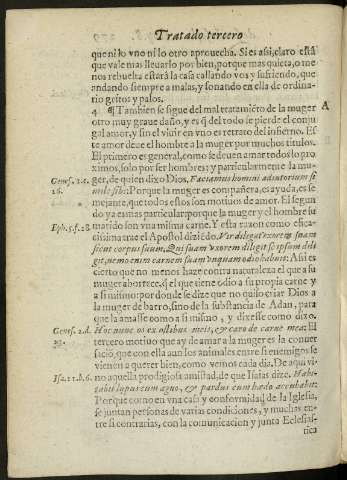 Tratado tercero
que ni lo vno ni lo otro aprouecha. Si es assi, claro està
que vale mas lleuarlo por bien, porque mas quieta, o me
nos rebuelta estarà la casa callando vos y sufriendo, que
andando siempre a malas, y sonando en ella de ordina-
rio gritos y palos.
4 ¶Tambien se sigue del mal tratamiẽto de la muger
otro muy graue daño, y es q̃ del todo se pierde el conju
gal amor, y sin el viuir en vno es retrato del infierno. Es
te amor deue el hombre a la muger por muchos titulos.
El primero es general, como se deuen amar todos los pro
ximos, solo por ser hombres; y particularmente la mu-
ger, de quien dixo Dios. Faciamus homini adiutorium si
mile sibi: Porque la muger es compañera, es ayuda, es se
mejante, que todos estos son motiuos de amor. El segun
do ya es mas particular: porque la muger y el hombre su
marido son vna misma carne. Y esta razon como efica-
cissima trae el Apostol diziẽdo. Vir diligat vxorẽ suam
sicut corpus suum. Qui suam vxorem diligit se ipsum dili
git, nemo enim carnem suam vnquam odio habuit: Assi es
cierto que no menos haze contra naturaleza el que a su
muger aborrece, q̃ el que tiene odio a su propia carne y
a si mismo: por donde se dize que no quiso criar Dios a
la muger de barro, sino de la substancia de Adan, para
que la amasse como a si mismo, y dixesse como dixo.
Hoc nunc os ex ossibus meis, & caro de carne mea: El
tercero motiuo que ay de amar a la muger es la conuer
saciõ, que con ella aun los animales entre si enemigos se
vienen a querer bien, como vemos cada dia. De aqui vi
no aquella prodigiosa amistad, de que Isaias dize. Habi-
tabit lupus cum agno, & pardus cum hædo accubabit:
Porque como en vna casa y conformidad de la Iglesia,
se juntan personas de varias condiciones, y muchas en-
tre si contrarias, con la comunicacion y junta Eclesias-
tica
A
Genes. 2.c.
Eph. 5.f.28.
Genes. 2.d.
Isa. 11.b.6.